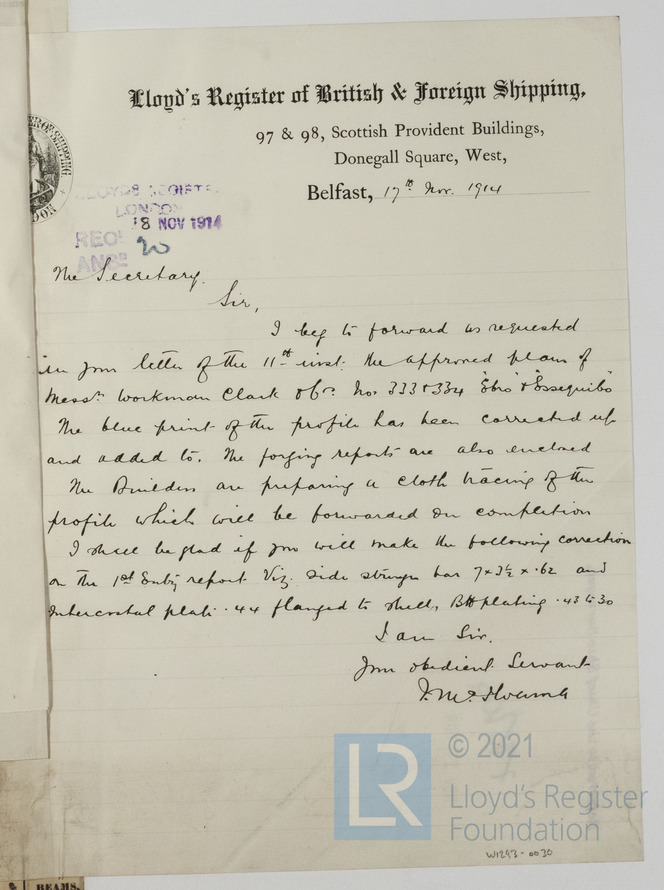 Lloyd's Register of British & Foreign Shipping,
97 & 98, Scottish Provident Buildings,
Donegall Square, West,
Belfast, 17th Nov. 1914
LLOYDS REGISTER
LONDON
18 NOV 1914
REC'D
ANSD 20
The Secretary.
Sir,
I beg to forward as requested
in your letter of the 11th inst. the approved plans of
Messrs Workman Clark & Co. Nos 333 & 334 "Ebro" & "Essequibo"
The blue print of the profile has been corrected up
and added to. The forging reports are also enclosed
The Builders are preparing a cloth tracing of the
profile which will be forwarded on completion
I shall be glad if you will make the following correction
on the 1st Entry report Viz. side stringer bar 7 x 3½ x .62 and
Intercostal plate .44 flanged to shell, BHd plating .43 to 30
I am Sir.
Your obedient Servant
LR
© 2021
Lloyd's Register
Foundation
W1293-0030
BEAMS.